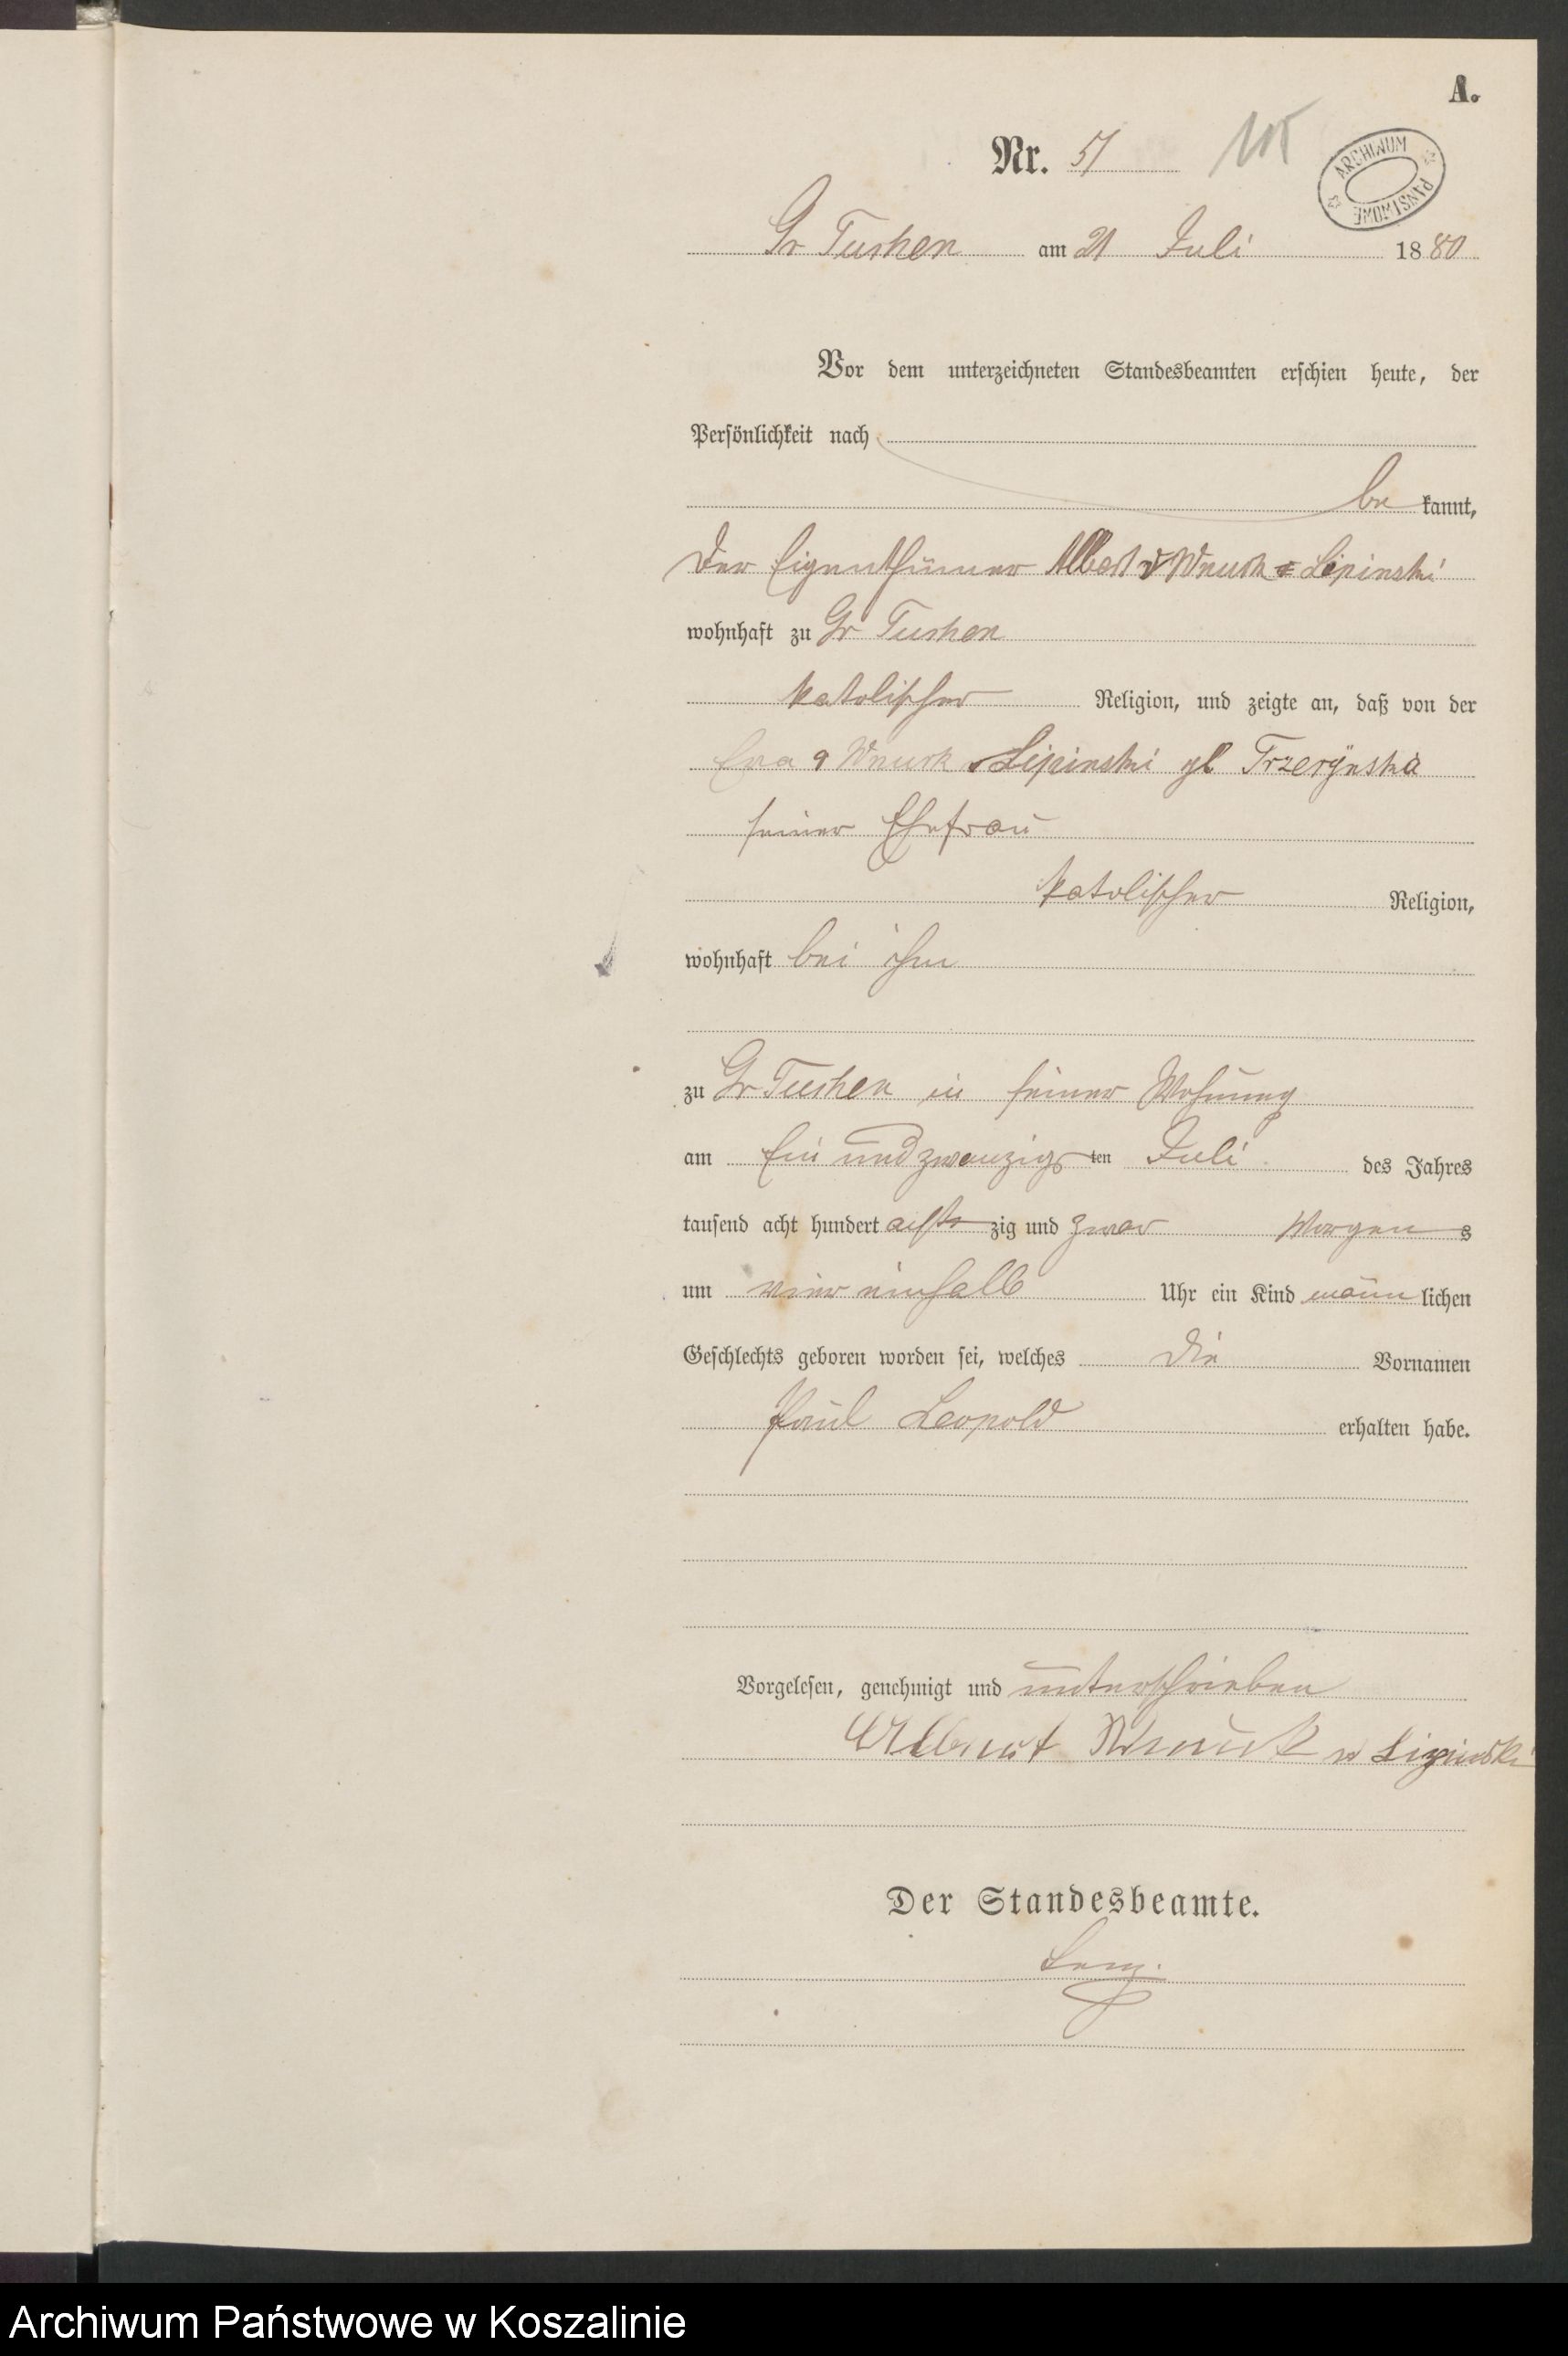 A.
Nr. 51
115
ARCHIWUM PAŃSTWOWE
Gr Tuchen am 21 Juli 1880
Vor dem unterzeichneten Standesbeamten erschien heute, der
Persönlichkeit nach
be kannt,
der Eigenthümer Albert v Wnuck Lipinski
wohnhaft zu Gr Tuchen
katolischer Religion, und zeigte an, daß von der
Eva Wnuck Lipinski
seiner Ehefrau
katolischer Religion,
wohnhaft bei ihm
zu Gr Tuchen in seiner Wohnung
am Ein und zwanzigsten Juli des Jahres
tausend acht hundert acht zig und zwar Morgens
um vier einhalb Uhr ein Kind männlichen
Geschlechts geboren worden sei, welches die Vornamen
Paul Leopold erhalten habe.
Vorgelesen, genehmigt und unterschrieben
Albert Wnuck v Lipinski
Der Standesbeamte.
Archiwum Państwowe w Koszalinie